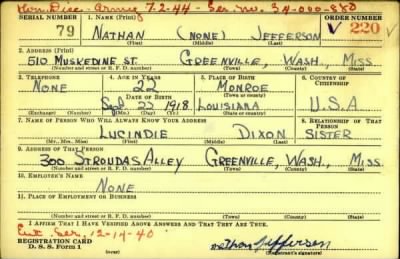 Hon. Disc. - Army 7-2-44 - Ser. no. 34-080-880
SERIAL NUMBER 1. NAME (Print) ORDER NUMBER
79 NATHAN (NONE) JEFFERSON V 220
(First) (Middle) (Last)
2. ADDRESS (Print)
510 MUSKEDINE ST. GREENVILLE, WASH., MISS.
(Number and street or R. F. D. number) (Town) (County) (State)
3. TELEPHONE 4. AGE IN YEARS 5. PLACE OF BIRTH 6. COUNTRY OF CITIZENSHIP
NONE 22 MONROE
DATE OF BIRTH (Town or county)
Sept. 22 1918 LOUISIANA U.S.A
(Exchange) (Number) (Mo.) (Day) (Yr.) (State or country)
7. NAME OF PERSON WHO WILL ALWAYS KNOW YOUR ADDRESS 8. RELATIONSHIP OF THAT PERSON
LUCINDIE DIXON SISTER
(Mr., Mrs., Miss) (First) (Middle) (Last)
9. ADDRESS OF THAT PERSON
300 STROUDAS ALLEY GREENVILLE, WASH., MISS.
(Number and street or R. F. D. number) (Town) (County) (State)
10. EMPLOYER'S NAME
NONE
11. PLACE OF EMPLOYMENT OR BUSINESS
(Number and street or R. F. D. number) (Town) (County) (State)
I AFFIRM THAT I HAVE VERIFIED ABOVE ANSWERS AND THAT THEY ARE TRUE.
Ent. Ser. 12-14-40
REGISTRATION CARD
D. S. S. Form 1 Nathan Jefferson
(over) (Registrant's signature)